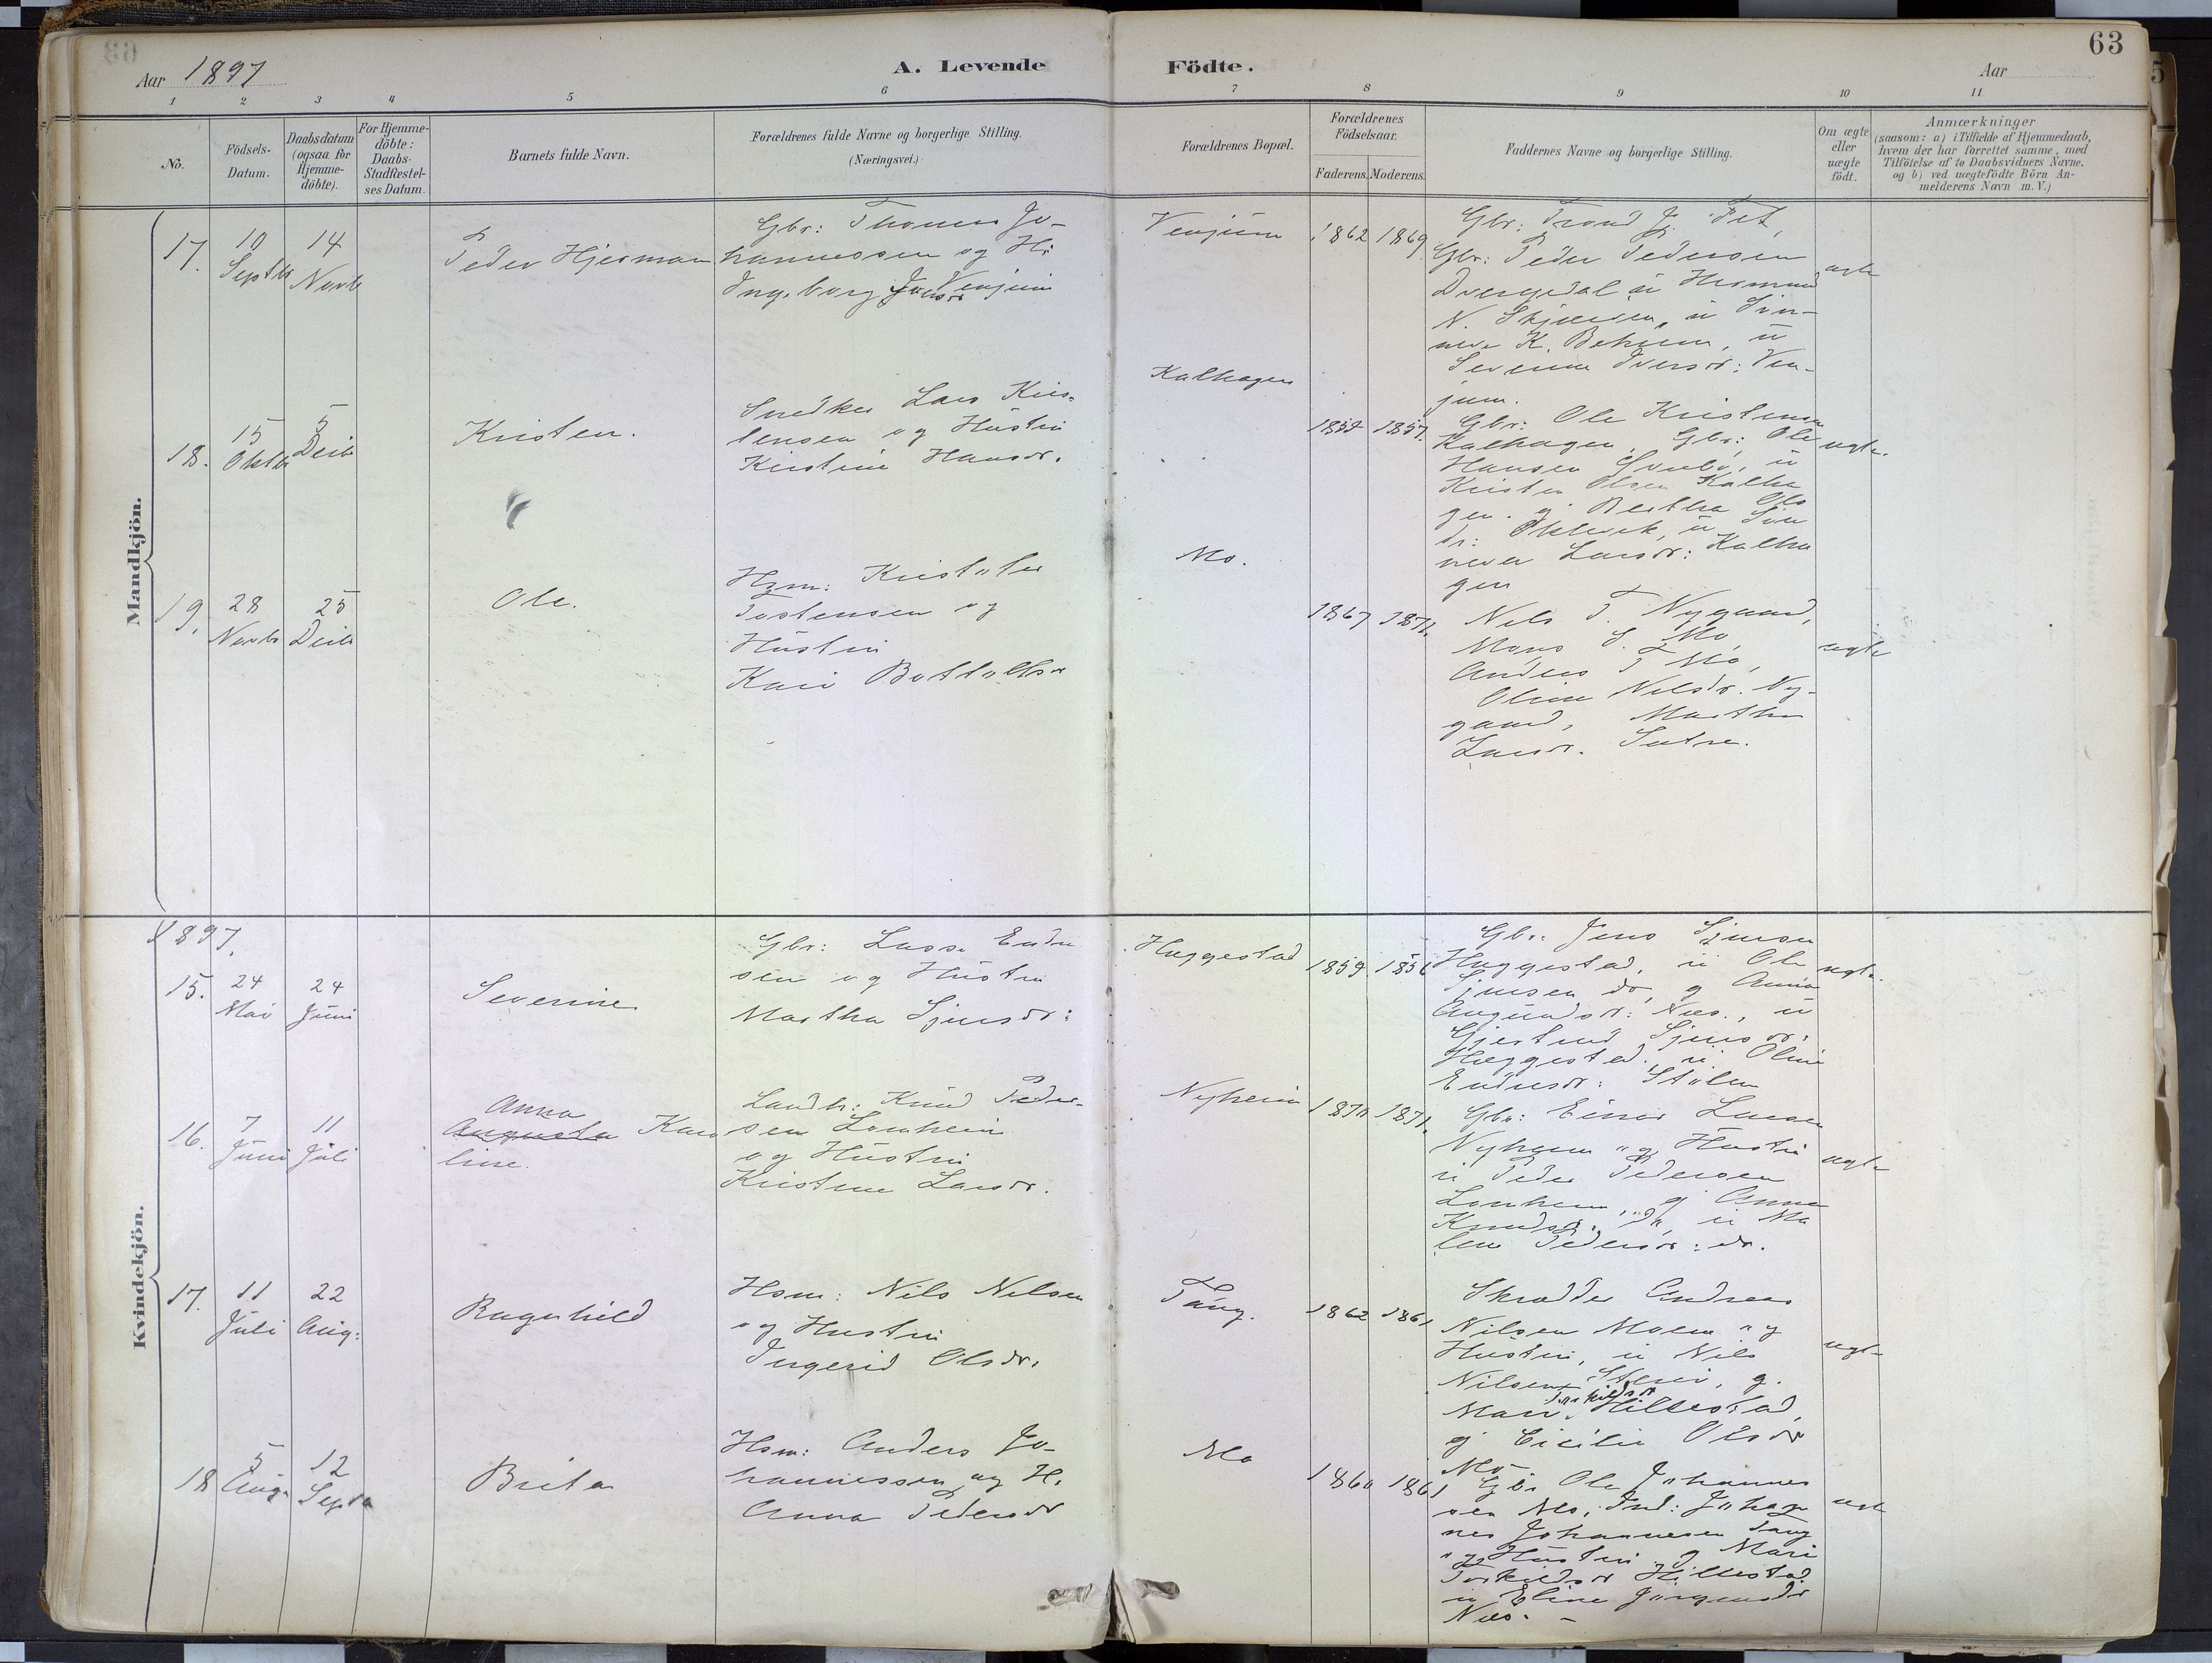 63
Aar 1897
A. Levende Födte.
Aar
1 2 3 4 5 6 7 8 9 10 11
No.
Födsels-
Datum.
Daabsdatum
(ogsaa for
Hjemme-
döbte).
For Hjemme-
döbte:
Daabs-
Stadfæstel-
ses Datum.
Barnets fulde Navn.
Forældrenes fulde Navne og borgerlige Stilling.
(Næringsvei.)
Forældrenes Bopæl.
Forældrenes
Födselsaar.
Faderens. Moderens.
Faddernes Navne og borgerlige Stilling.
Om ægte
eller
uægte
födt.
Anmærkninger
(saasom: a) i Tilfælde af Hjemmedaab,
hvem der har forrettet samme, med
Tilföielse af to Daabsvidners Navne,
og b) ved uægtefödte Börn An-
melderens Navn m. V.)
Mandkjön.
17.
10
Septbr
14
Novb
Peder Hjerman
Gbr: Thomas Jo-
hannessen og H:
Ingeborg Venjum
Venjum
1862 1869
Gbr: Trond J. Fet,
Gbr: Peder Pedersen
Dvergedal, u Hermund
N. Skjerven, u Syn-
neve K. Bohum, u
Severine Iversdr: Ven-
jum.
ægte
18.
15
Oktb
5
Decb
Kristen.
Snedker Lars Kris-
tensen og Hustru
Kirstine Hansdr.
Kalhagen
1859 1857.
Gbr: Ole Kristensen
Kalhagen, Gbr: Ole
Hansen u
Kristen Olsen Kalha
gen. g. Bertha Ols
dr: u Syn
neva Larsdr: Kalha
gen
ægte.
19.
28
Novb
25
Decb
Ole.
Hsm: Kristofer
Tostensen og
Hustru
Kari Botolfsdr
Mo.
1867 1871.
Nils T. Nygaard,
Mons S. Mo,
Anders T Mo,
Oline Nilsdr. Ny-
gaard, Martha
Larsdr. Sætre.
ægte
Kvindekjön.
1897.
15.
24
Mai
24
Juni
Severine
Gbr: Lasse Endre
sen og Hustru
Martha Sjursdr:
Hæggestad
1859 1856
Gbr. Jens Sjursen
Hæggestad, u Ole
Sjursen do, g Anna
Augundsdr: Næs., u
Gjertrud Sjursdr:
Hæggestad, u Oline
Endresdr: Stølen
ægte.
16.
7
Juni
11
Juli
Anna
Augusta Karo
line.
Landh: Knud Peder-
sen Lomheim
og Hustru
Kristine Larsdr.
Nyheim
1870 1871.
Gbr: Einar Larsen
Nyheim og Hustru
u Peder Pedersen
Lomheim, g Anna
Knudsdr: do, u Ma
lene Pedersdr: do.
ægte
17.
11
Juli
22
Aug:
Ragnhild
Hsm: Nils Nilsen
og Hustru
Ingerid Olsdr.
Tang.
1862 1861
Skrædder Andreas
Nilsen Moen og
Hustru, u Nils
Nilsen g.
Torkildsdr
Mari Hillestad,
g Cicilie Olsdr
Mo
ægte
18
5
Aug.
12
Septb
Brita
Hsm: Anders Jo-
hannessen og H:
Anna Pedersdr
Mo
1860 1861
Gbr Ole Johannes
sen Mo, Ind: Johan
nes Johannesen Tang
og Hustru, g Mari
Torkildsdr Hillestad
u Eline Jörgensdr
Næs.
ægte